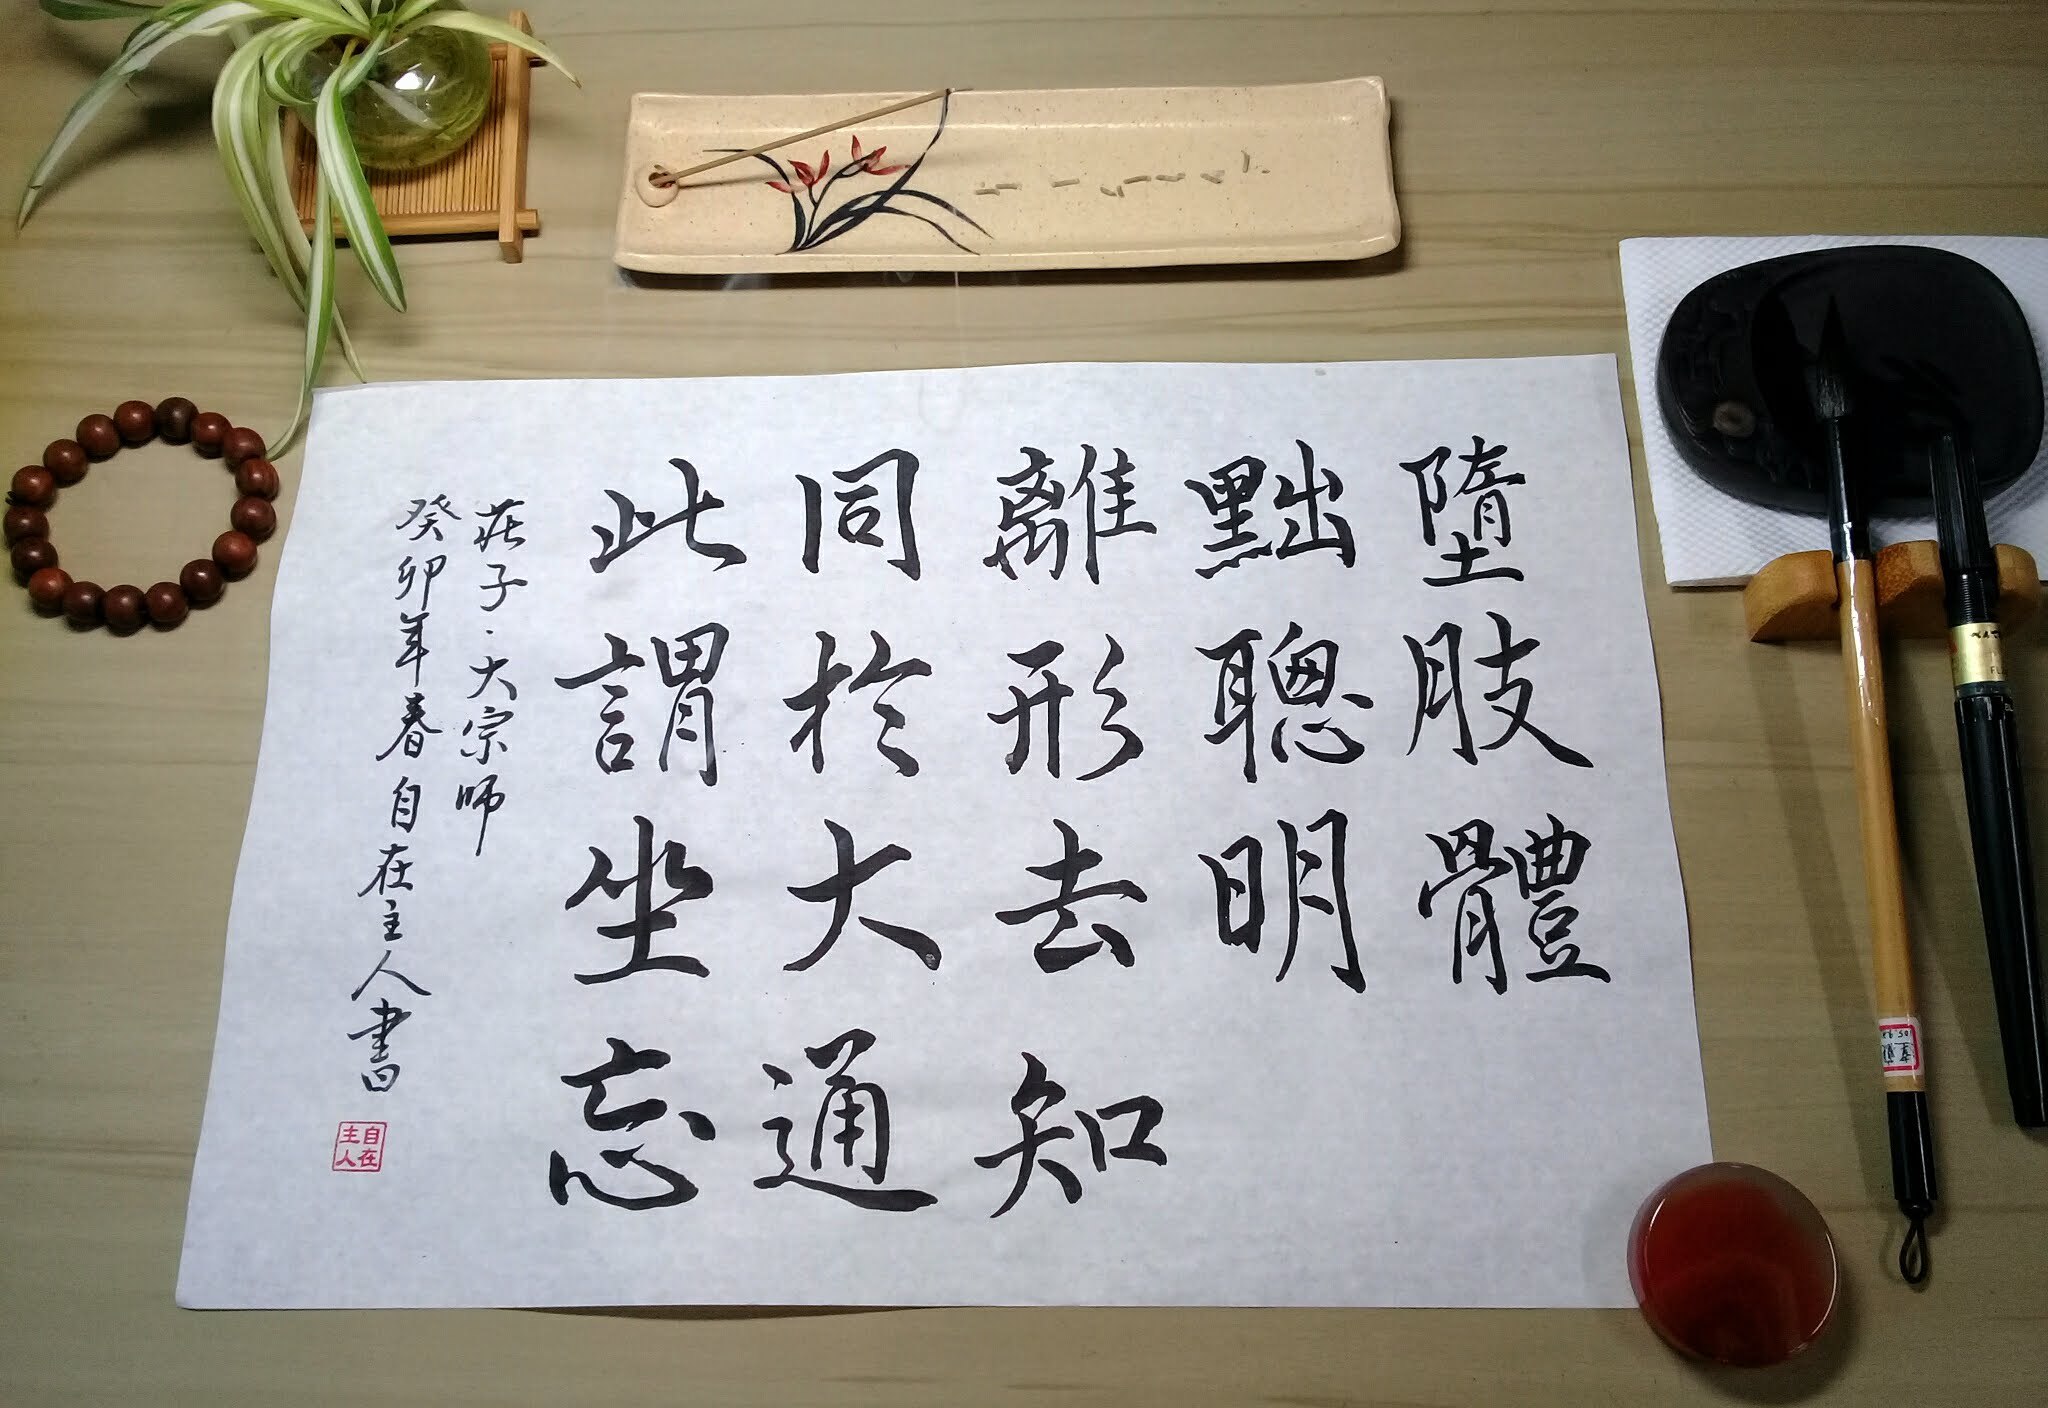 墮肢體
黜聰明
離形去知
同於大通
此謂坐忘
莊子·大宗師
癸卯年春自在主人書
自在
主人